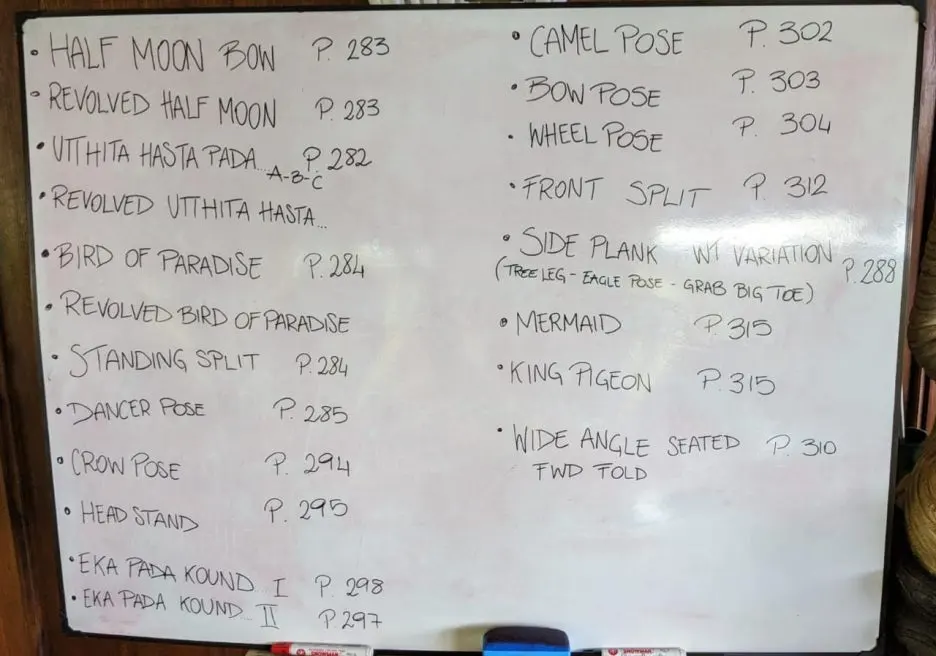 • HALF MOON BOW P. 283
• REVOLVED HALF MOON P. 283
• UTTHITA HASTA PADA... P. 282
A-B-C
• REVOLVED UTTHITA HASTA...
• BIRD OF PARADISE P. 284
• REVOLVED BIRD OF PARADISE
• STANDING SPLIT P. 284
• DANCER POSE P. 285
• CROW POSE P. 294
• HEAD STAND P. 295
• EKA PADA KOUND I P. 298
• EKA PADA KOUND... II P. 297
• CAMEL POSE P. 302
• BOW POSE P. 303
• WHEEL POSE P. 304
• FRONT SPLIT P. 312
• SIDE PLANK WT VARIATION P. 288
(TREE LEG - EAGLE POSE - GRAB BIG TOE)
• MERMAID P. 315
• KING PIGEON P. 315
• WIDE ANGLE SEATED P. 310
FWD FOLD
SNOWMAN
SNOWMAN